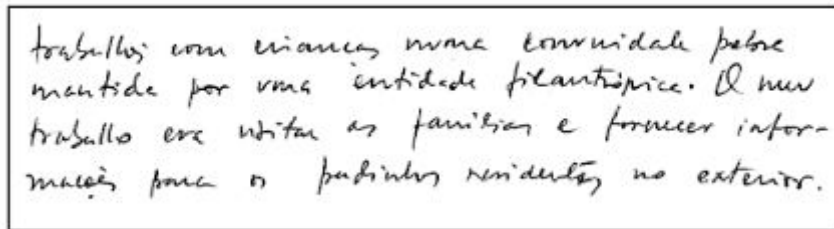 trabalhos com crianças numa comunidade pobre
mantida por uma entidade filantrópica. O meu
trabalho era visitar as famílias e fornecer infor-
mações para os padinhos residentes no exterior.